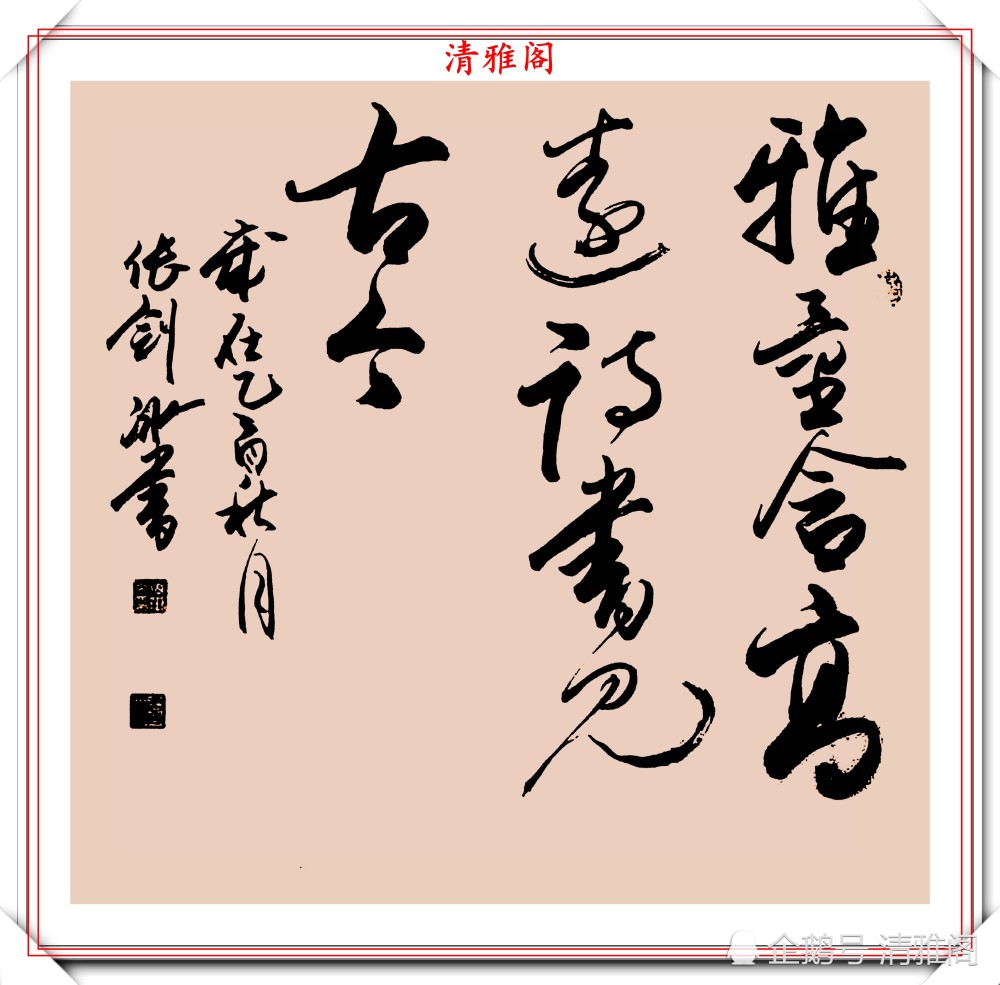 清雅阁
雅量含高
遠詩書見
古今
歲在乙酉秋月
張劍書
企鹅号 清雅阁